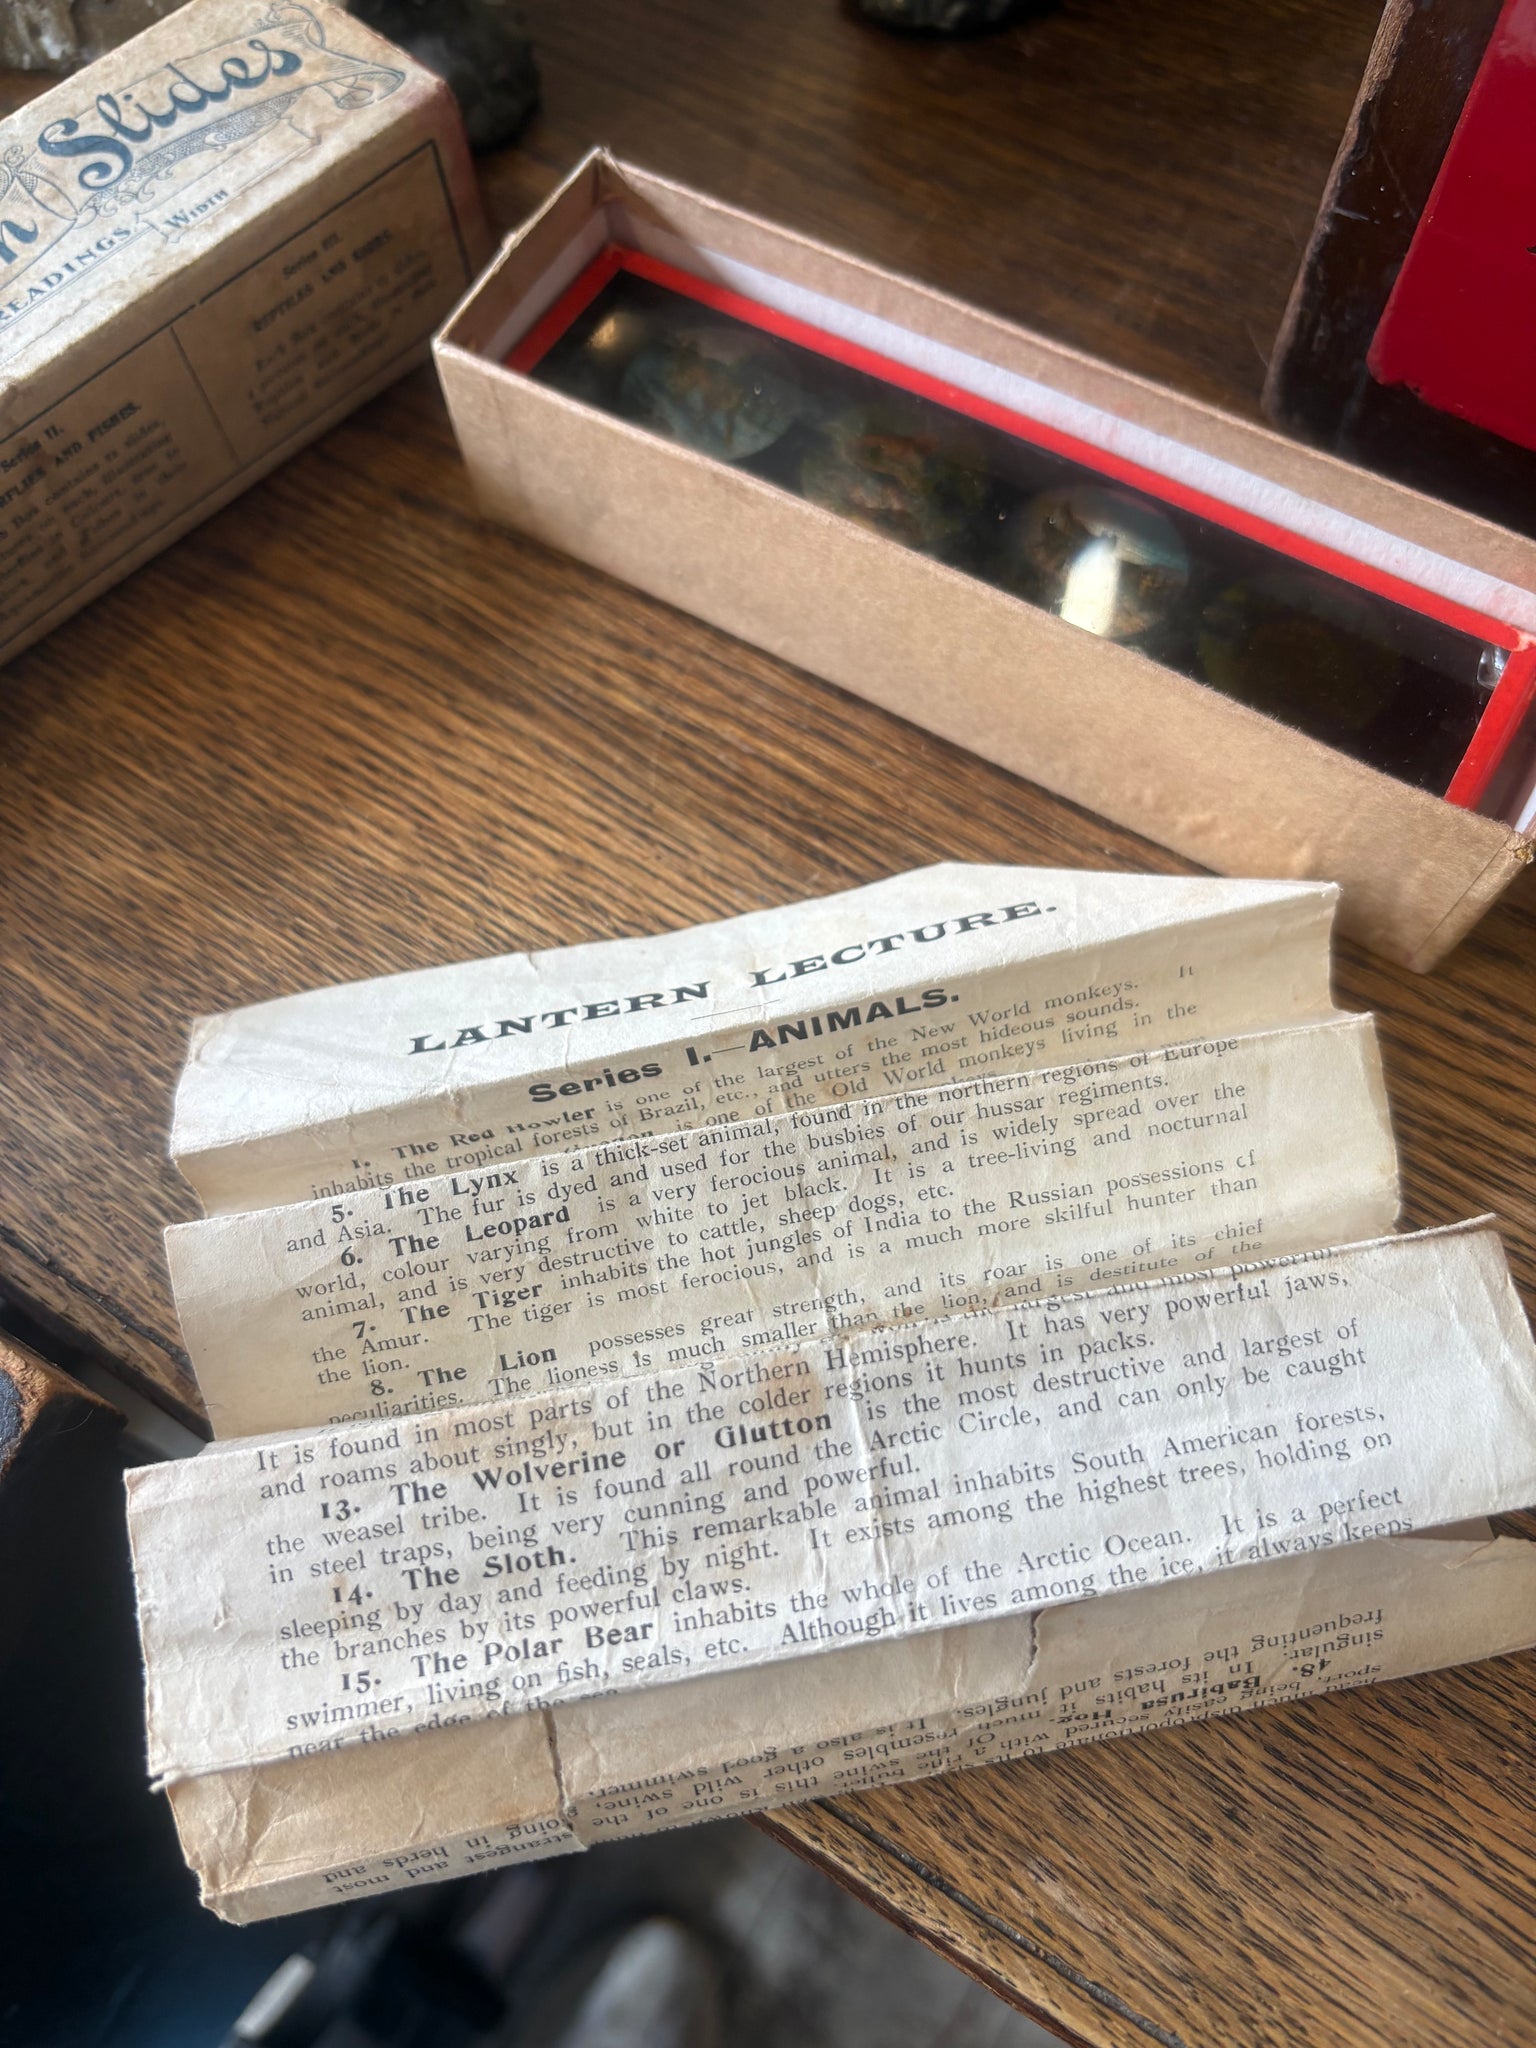 Slides
READINGS.
WIDTH
Series II.
AND FISHES.
Box contains 12 slides,
Series III.
REPTILES AND
LANTERN LECTURE.
Series I.—ANIMALS.
1. The Red Howler is one of the largest of the New World monkeys. It
inhabits the tropical forests of Brazil, etc., and utters the most hideous sounds.
is one of the Old World monkeys living in the
5. The Lynx is a thick-set animal, found in the northern regions of Europe
and Asia. The fur is dyed and used for the busbies of our hussar regiments.
6. The Leopard is a very ferocious animal, and is widely spread over the
world, colour varying from white to jet black. It is a tree-living and nocturnal
animal, and is very destructive to cattle, sheep dogs, etc.
7. The Tiger inhabits the hot jungles of India to the Russian possessions of
the Amur. The tiger is most ferocious, and is a much more skilful hunter than
the lion.
8. The Lion possesses great strength, and its roar is one of its chief
peculiarities. The lioness is much smaller than the lion, and is destitute of the
largest and most powerful.
It is found in most parts of the Northern Hemisphere. It has very powerful jaws,
and roams about singly, but in the colder regions it hunts in packs.
13. The Wolverine or Glutton is the most destructive and largest of
the weasel tribe. It is found all round the Arctic Circle, and can only be caught
in steel traps, being very cunning and powerful.
14. The Sloth. This remarkable animal inhabits South American forests,
sleeping by day and feeding by night. It exists among the highest trees, holding on
the branches by its powerful claws.
15. The Polar Bear inhabits the whole of the Arctic Ocean. It is a perfect
swimmer, living on fish, seals, etc. Although it lives among the ice, it always keeps
near the edge of the sea
48. Babirusa Hog. Of the swine this is one of the strangest and most
singular. In its habits it much resembles other wild swine, going in herds and
frequenting the forests and jungles. It is also a good swimmer.